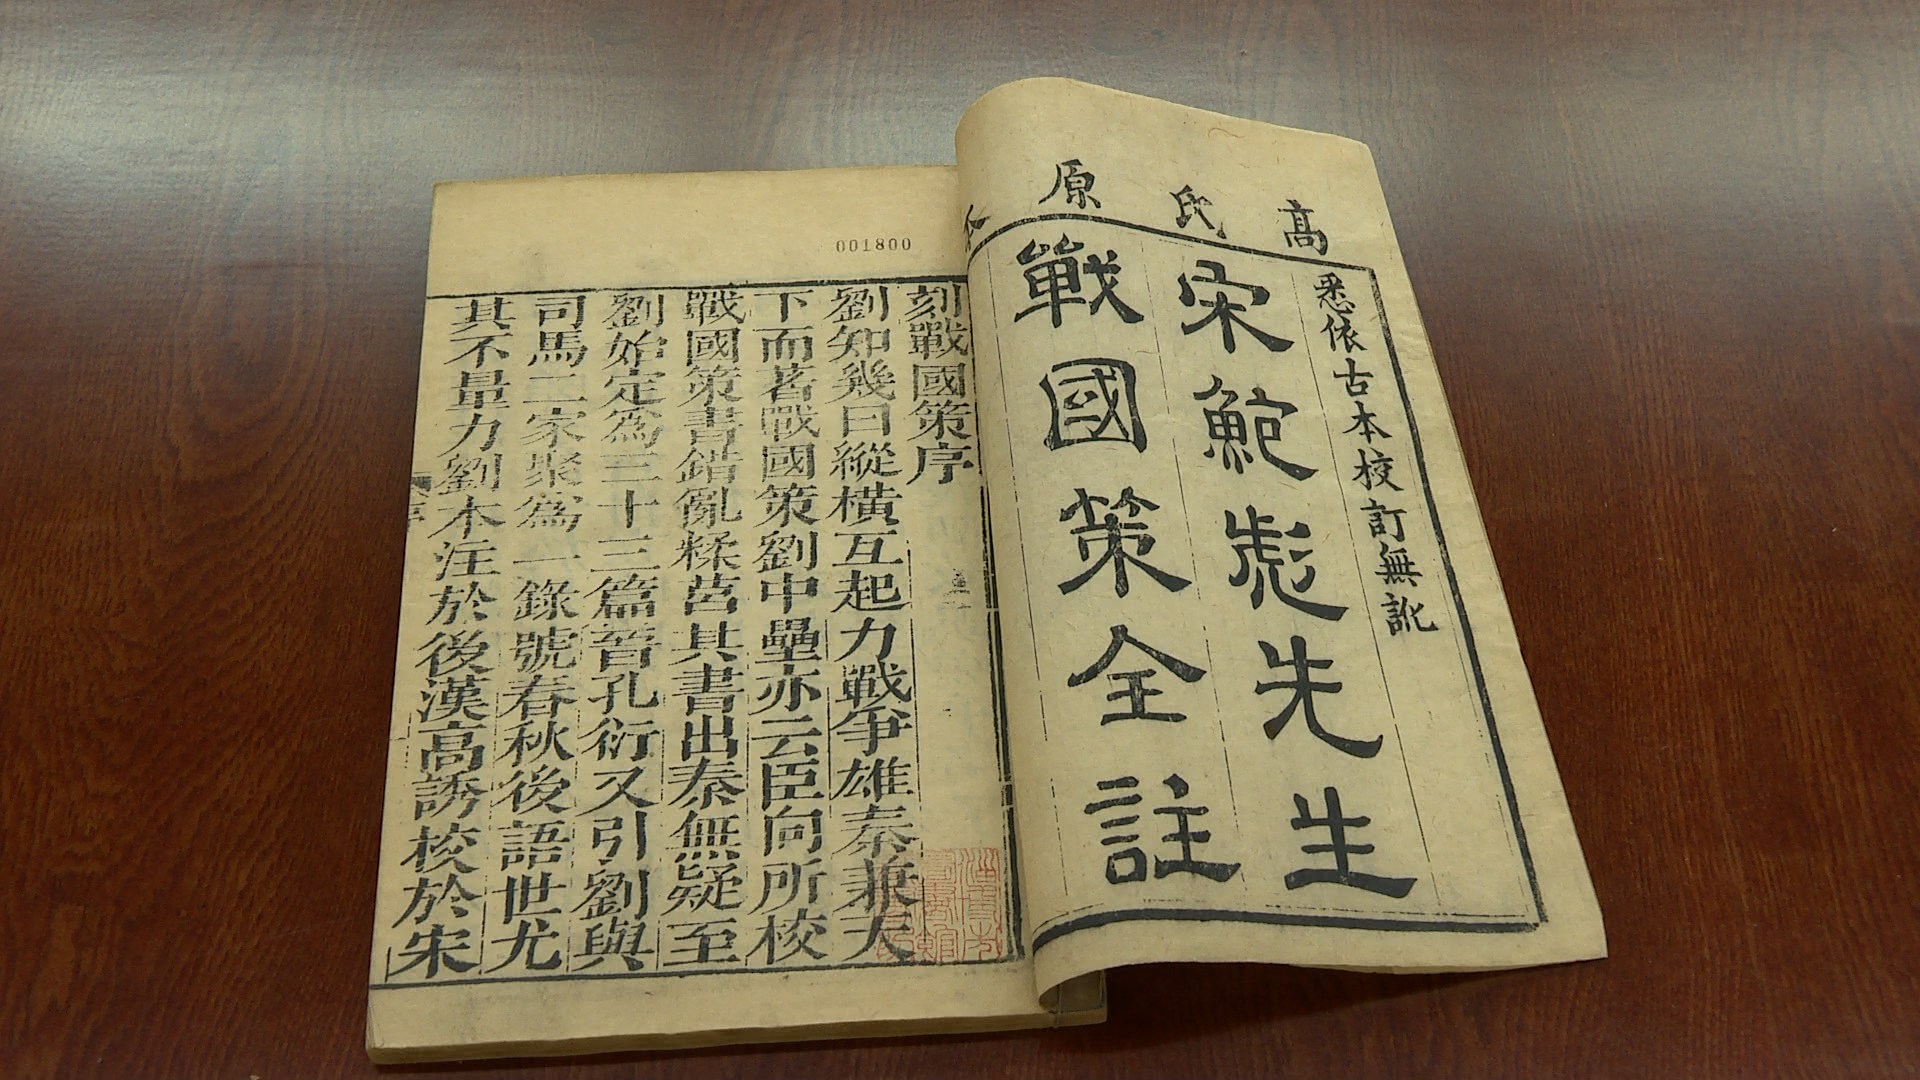 高氏原本
悉依古本校訂無訛
宋鮑彪先生
戰國策全註
001800
刻戰國策序
劉知幾曰縱橫互起力戰爭雄秦兼天
下而著戰國策劉中壘亦云臣向所校
戰國策書錯亂糅莒其書出泰無疑至
劉始定為三十三篇晉孔衍又引劉與
司馬二家聚為一錄號春秋後語世尤
其不量力劉本注於後漢高誘校於宋